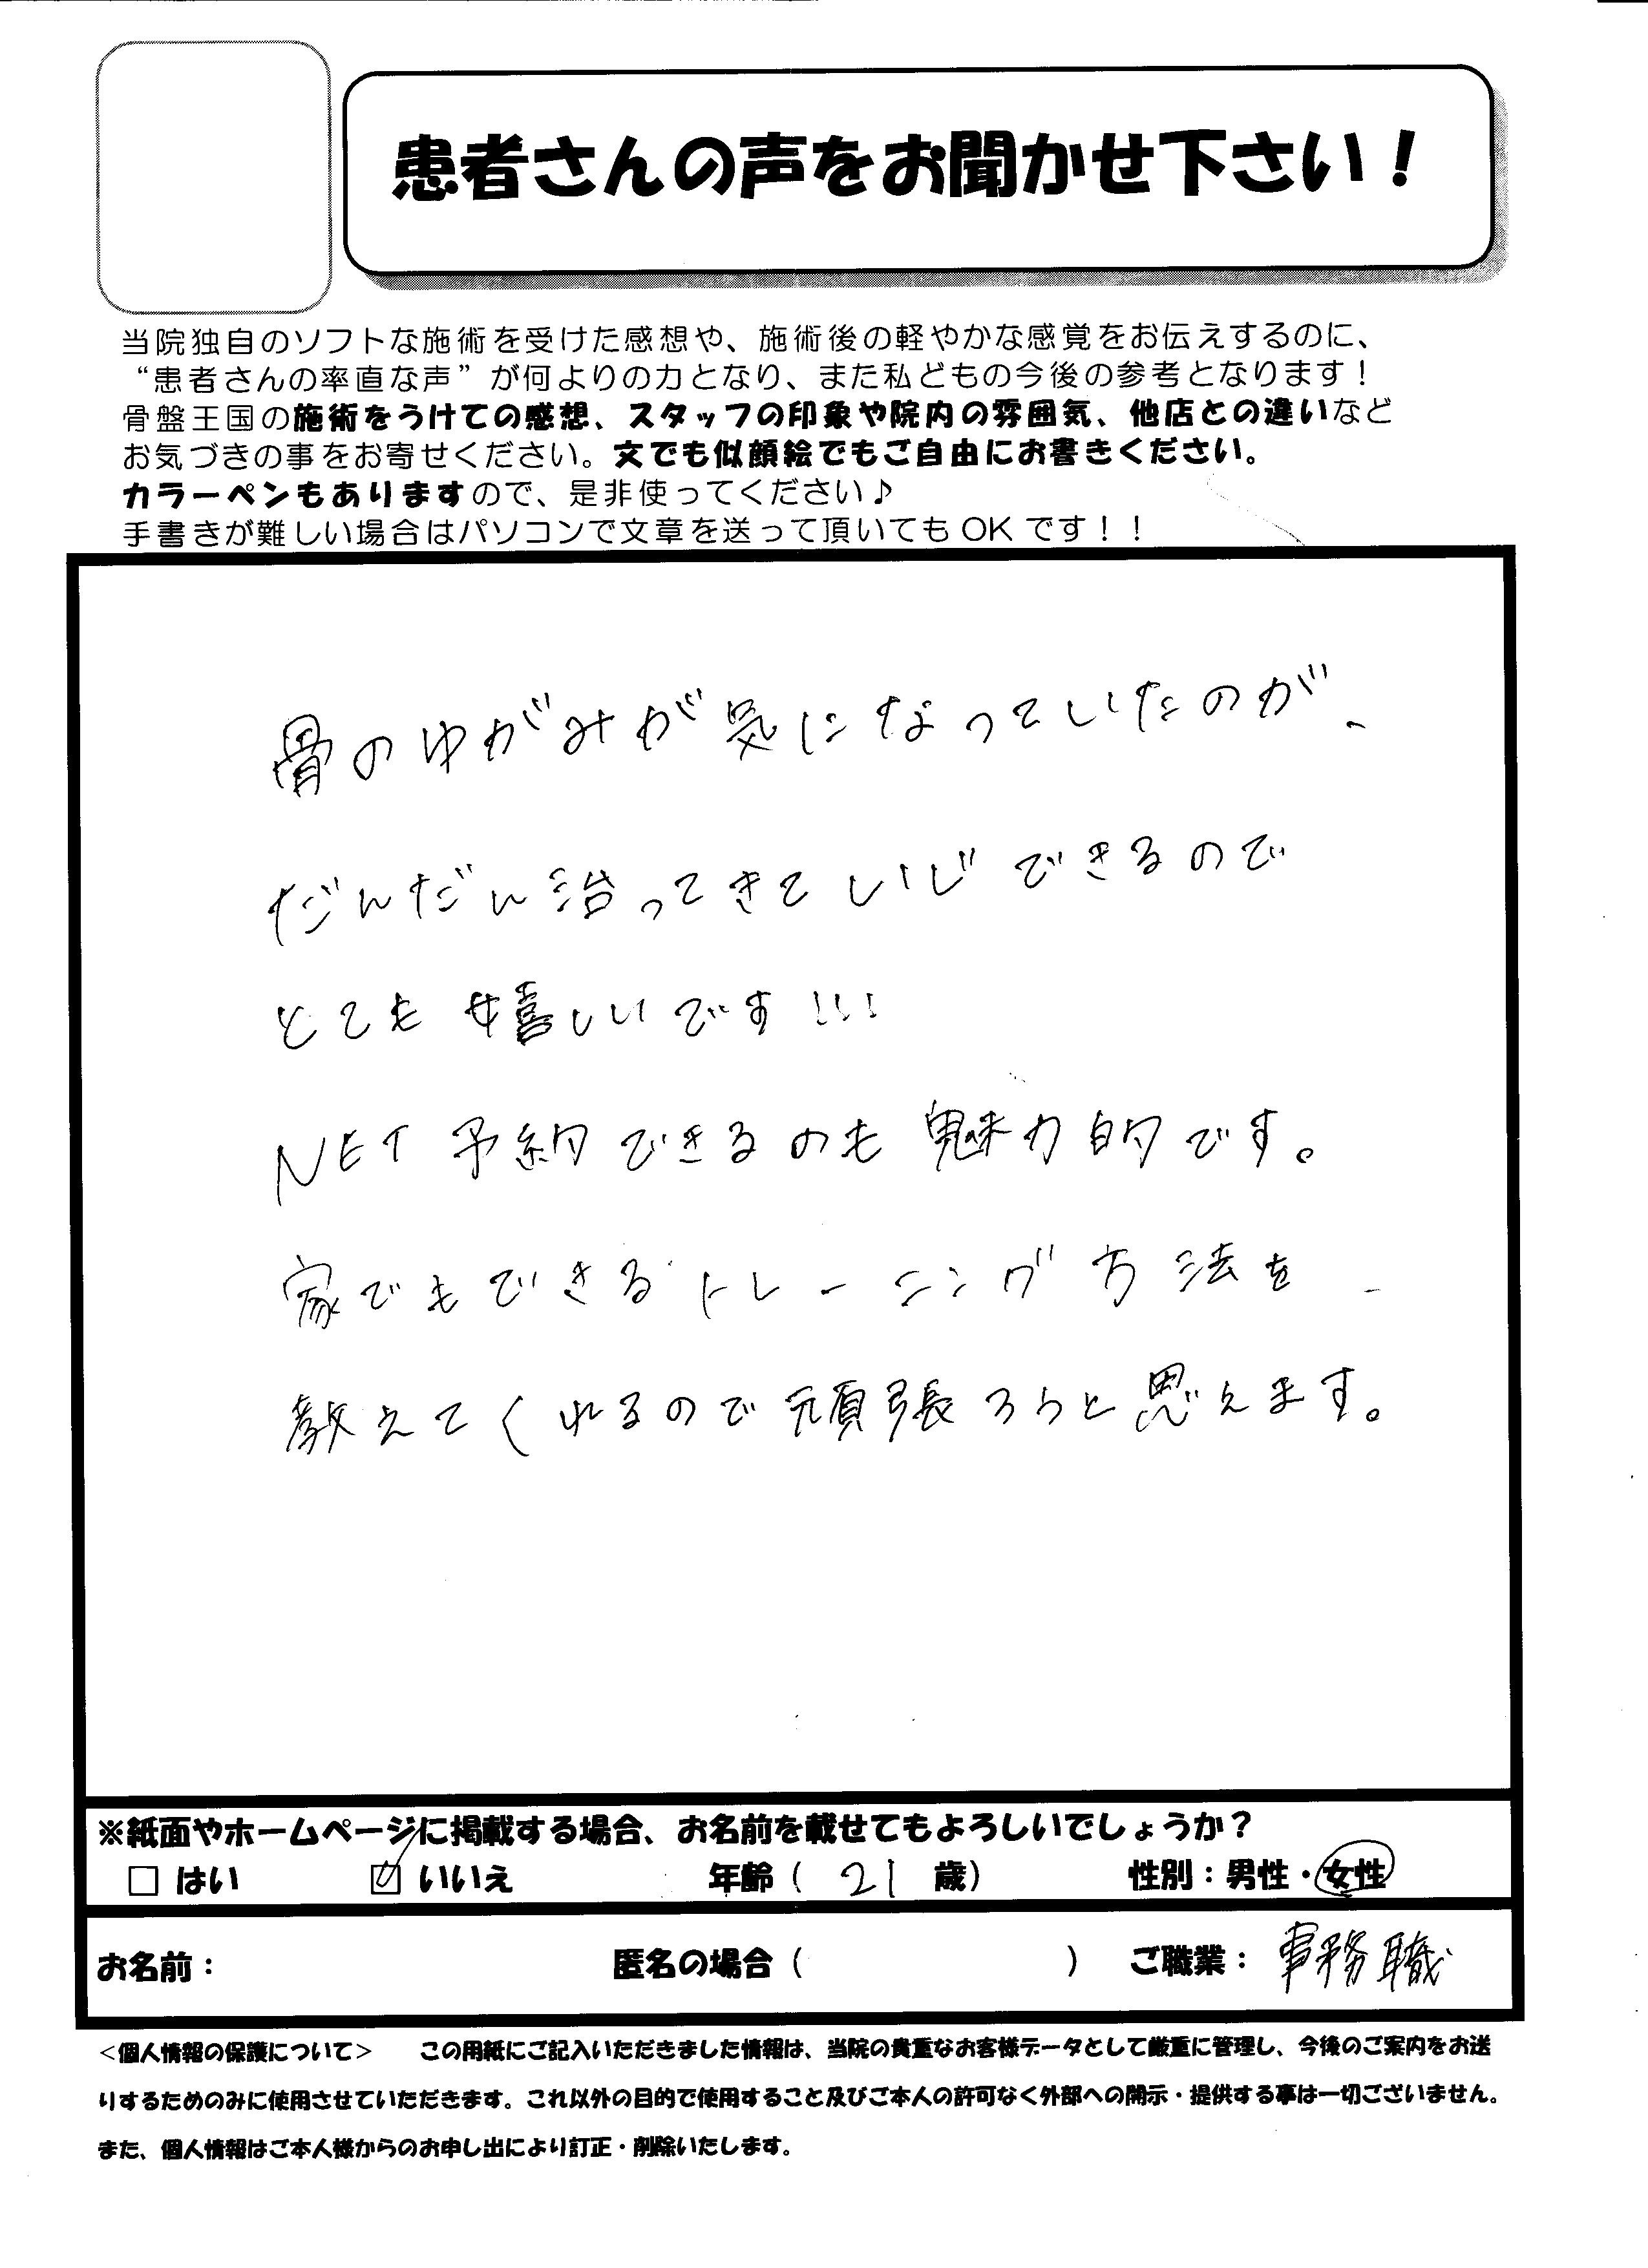 患者さんの声をお聞かせ下さい！
当院独自のソフトな施術を受けた感想や、施術後の軽やかな感覚をお伝えするのに、
“患者さんの率直な声”が何よりの力となり、また私どもの今後の参考となります！
骨盤王国の施術をうけての感想、スタッフの印象や院内の雰囲気、他店との違いなど
お気づきの事をお寄せください。文でも似顔絵でもご自由にお書きください。
カラーペンもありますので、是非使ってください♪
手書きが難しい場合はパソコンで文章を送って頂いてもOKです！！
骨のゆがみが気になっていたのが、
だんだん治ってきていじできるので
とても嬉しいです!!!
NET予約できるのも魅力的です。
家でもできるトレーニング方法を、
教えてくれるので頑張ろうと思えます。
※紙面やホームページに掲載する場合、お名前を載せてもよろしいでしょうか？
□ はい ☑ いいえ 年齢（ 21 歳） 性別：男性・女性
お名前： 匿名の場合（ ） ご職業：事務職
＜個人情報の保護について＞ この用紙にご記入いただきました情報は、当院の貴重なお客様データとして厳重に管理し、今後のご案内をお送
りするためのみに使用させていただきます。これ以外の目的で使用すること及びご本人の許可なく外部への開示・提供する事は一切ございません。
また、個人情報はご本人様からのお申し出により訂正・削除いたします。